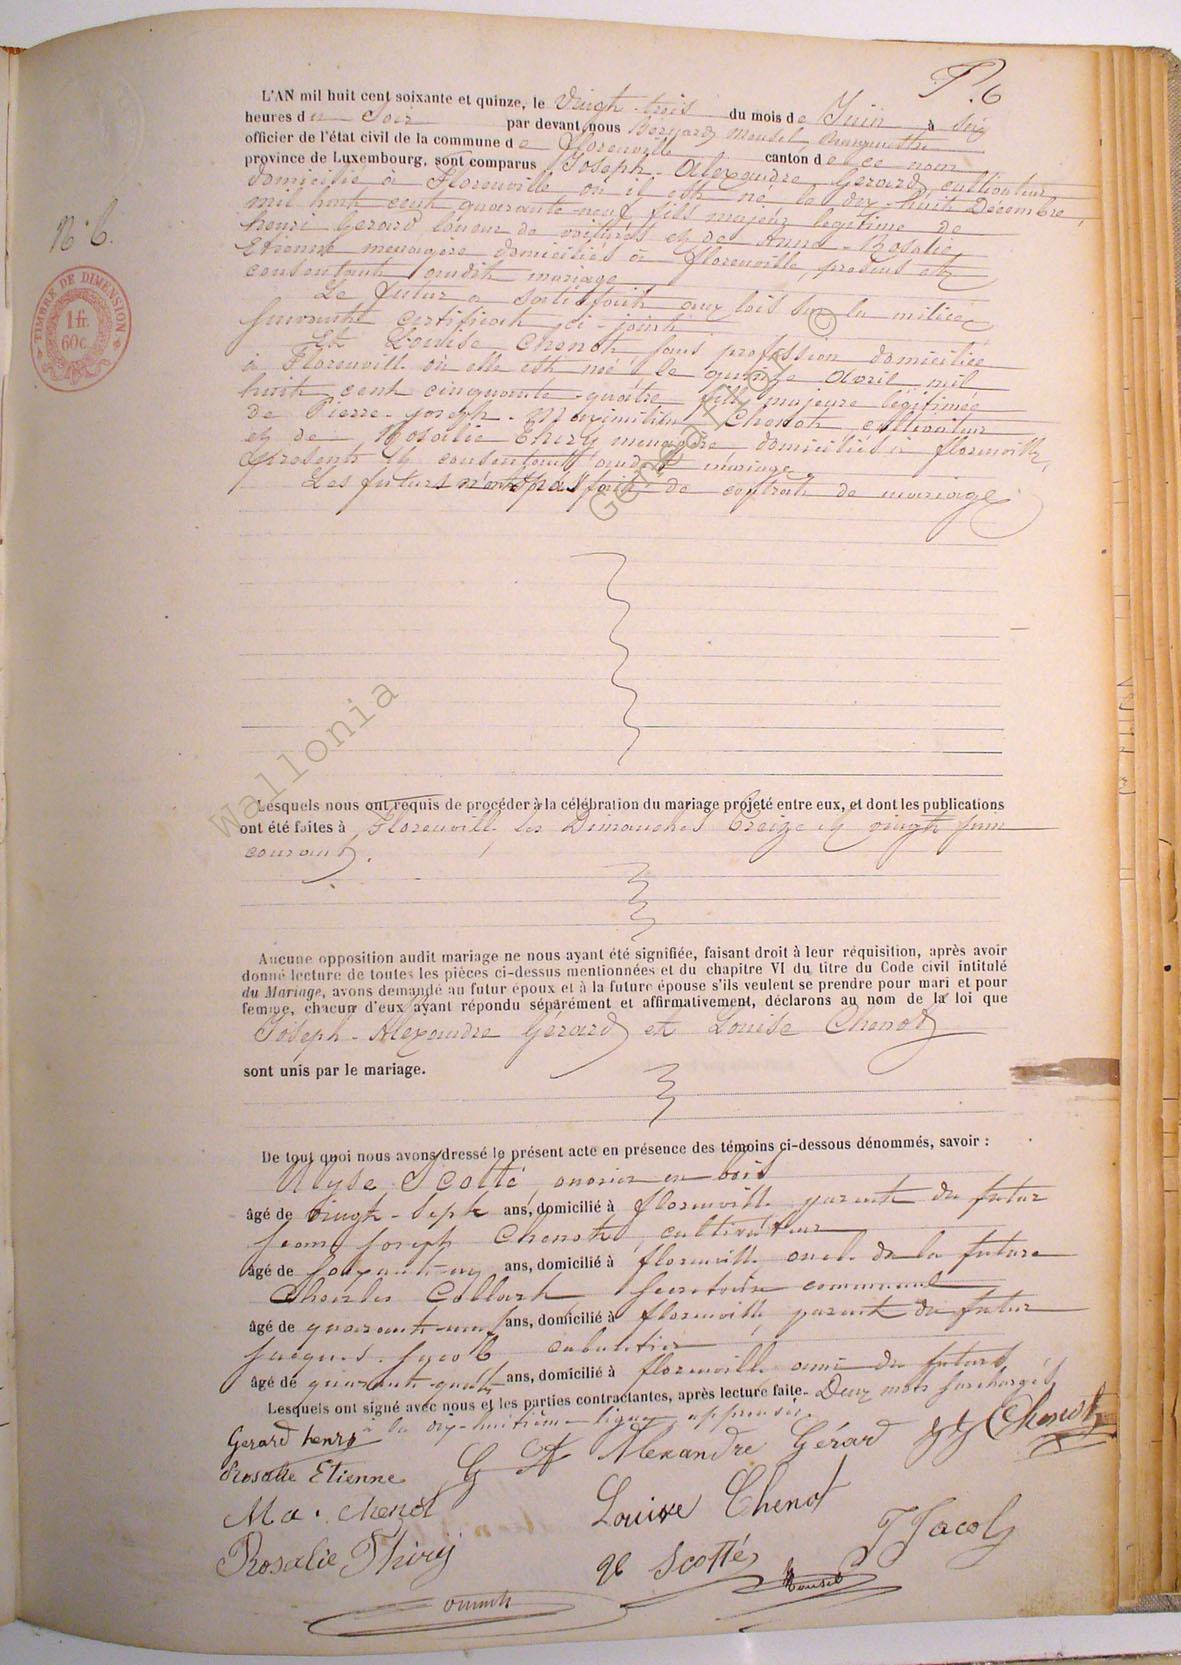 P. 6
L'AN mil huit cent soixante et quinze, le vingt-trois du mois de Juin à six
heures du Soir par devant nous Bernard Mousel, Bourgmestre
officier de l'état civil de la commune de Florenville canton de ce nom
province de Luxembourg, sont comparus Joseph-Alexandre Gerard, cultivateur
domicilié à Florenville où il est né le dix-huit Décembre
mil huit cent quarante-neuf fils majeur légitime de
henri Gerard loueur de voitures et de Anne-Rosalie
Etienne menagère domiciliés à florenville, présens et
consentants audit mariage
N° 6.
TIMBRE DE DIMENSION
1 fr.
60 c.
Le futur a satisfait aux lois sur la milice
suivant certificat ci-joint
Et Louise Chenot, sans profession domiciliée
à Florenville où elle est née le quinze avril mil
huit cent cinquante-quatre fille majeure légitimée
de Pierre-Joseph-Maximilien Chenot, cultivateur
et de Rosalie Thiry menagère domiciliés à florenville,
présents et consentants audit mariage.
Les futurs n'ont pas fait de contrat de mariage
©
Geneanet
Wallonia
Lesquels nous ont requis de procéder à la célébration du mariage projeté entre eux, et dont les publications
ont été faites à Florenville les Dimanches treize et vingt juin
courant.
Aucune opposition audit mariage ne nous ayant été signifiée, faisant droit à leur réquisition, après avoir
donné lecture de toutes les pièces ci-dessus mentionnées et du chapitre VI du titre du Code civil intitulé
du Mariage, avons demandé au futur époux et à la future épouse s'ils veulent se prendre pour mari et pour
femme, chacun d'eux ayant répondu séparément et affirmativement, déclarons au nom de la loi que
Joseph-Alexandre Gérard et Louise Chenot
sont unis par le mariage.
De tout quoi nous avons dressé le présent acte en présence des témoins ci-dessous dénommés, savoir :
Ulyse Scotté, ouvrier en bois
âgé de vingt-sept ans, domicilié à florenville parent du futur
Jean Joseph Chenot, cultivateur
âgé de ans, domicilié à florenville oncle de la future
Charles Collart Secrétaire communal
âgé de quarante-neuf ans, domicilié à florenville parent du futur
Jacques Jacob cabaretier
âgé de quarante-quatre ans, domicilié à florenville ami du futurs
Lesquels ont signé avec nous et les parties contractantes, après lecture faite. Deux mots surchargés
à la dix-huitième ligne approuvés.
Gerard henri
Alexandre Gérard
JJ Chenot
Rosalie Etienne
Ma. chenot
Louise Chenot
J Jacob
Rosalie Thiry
Scotté
Mousel